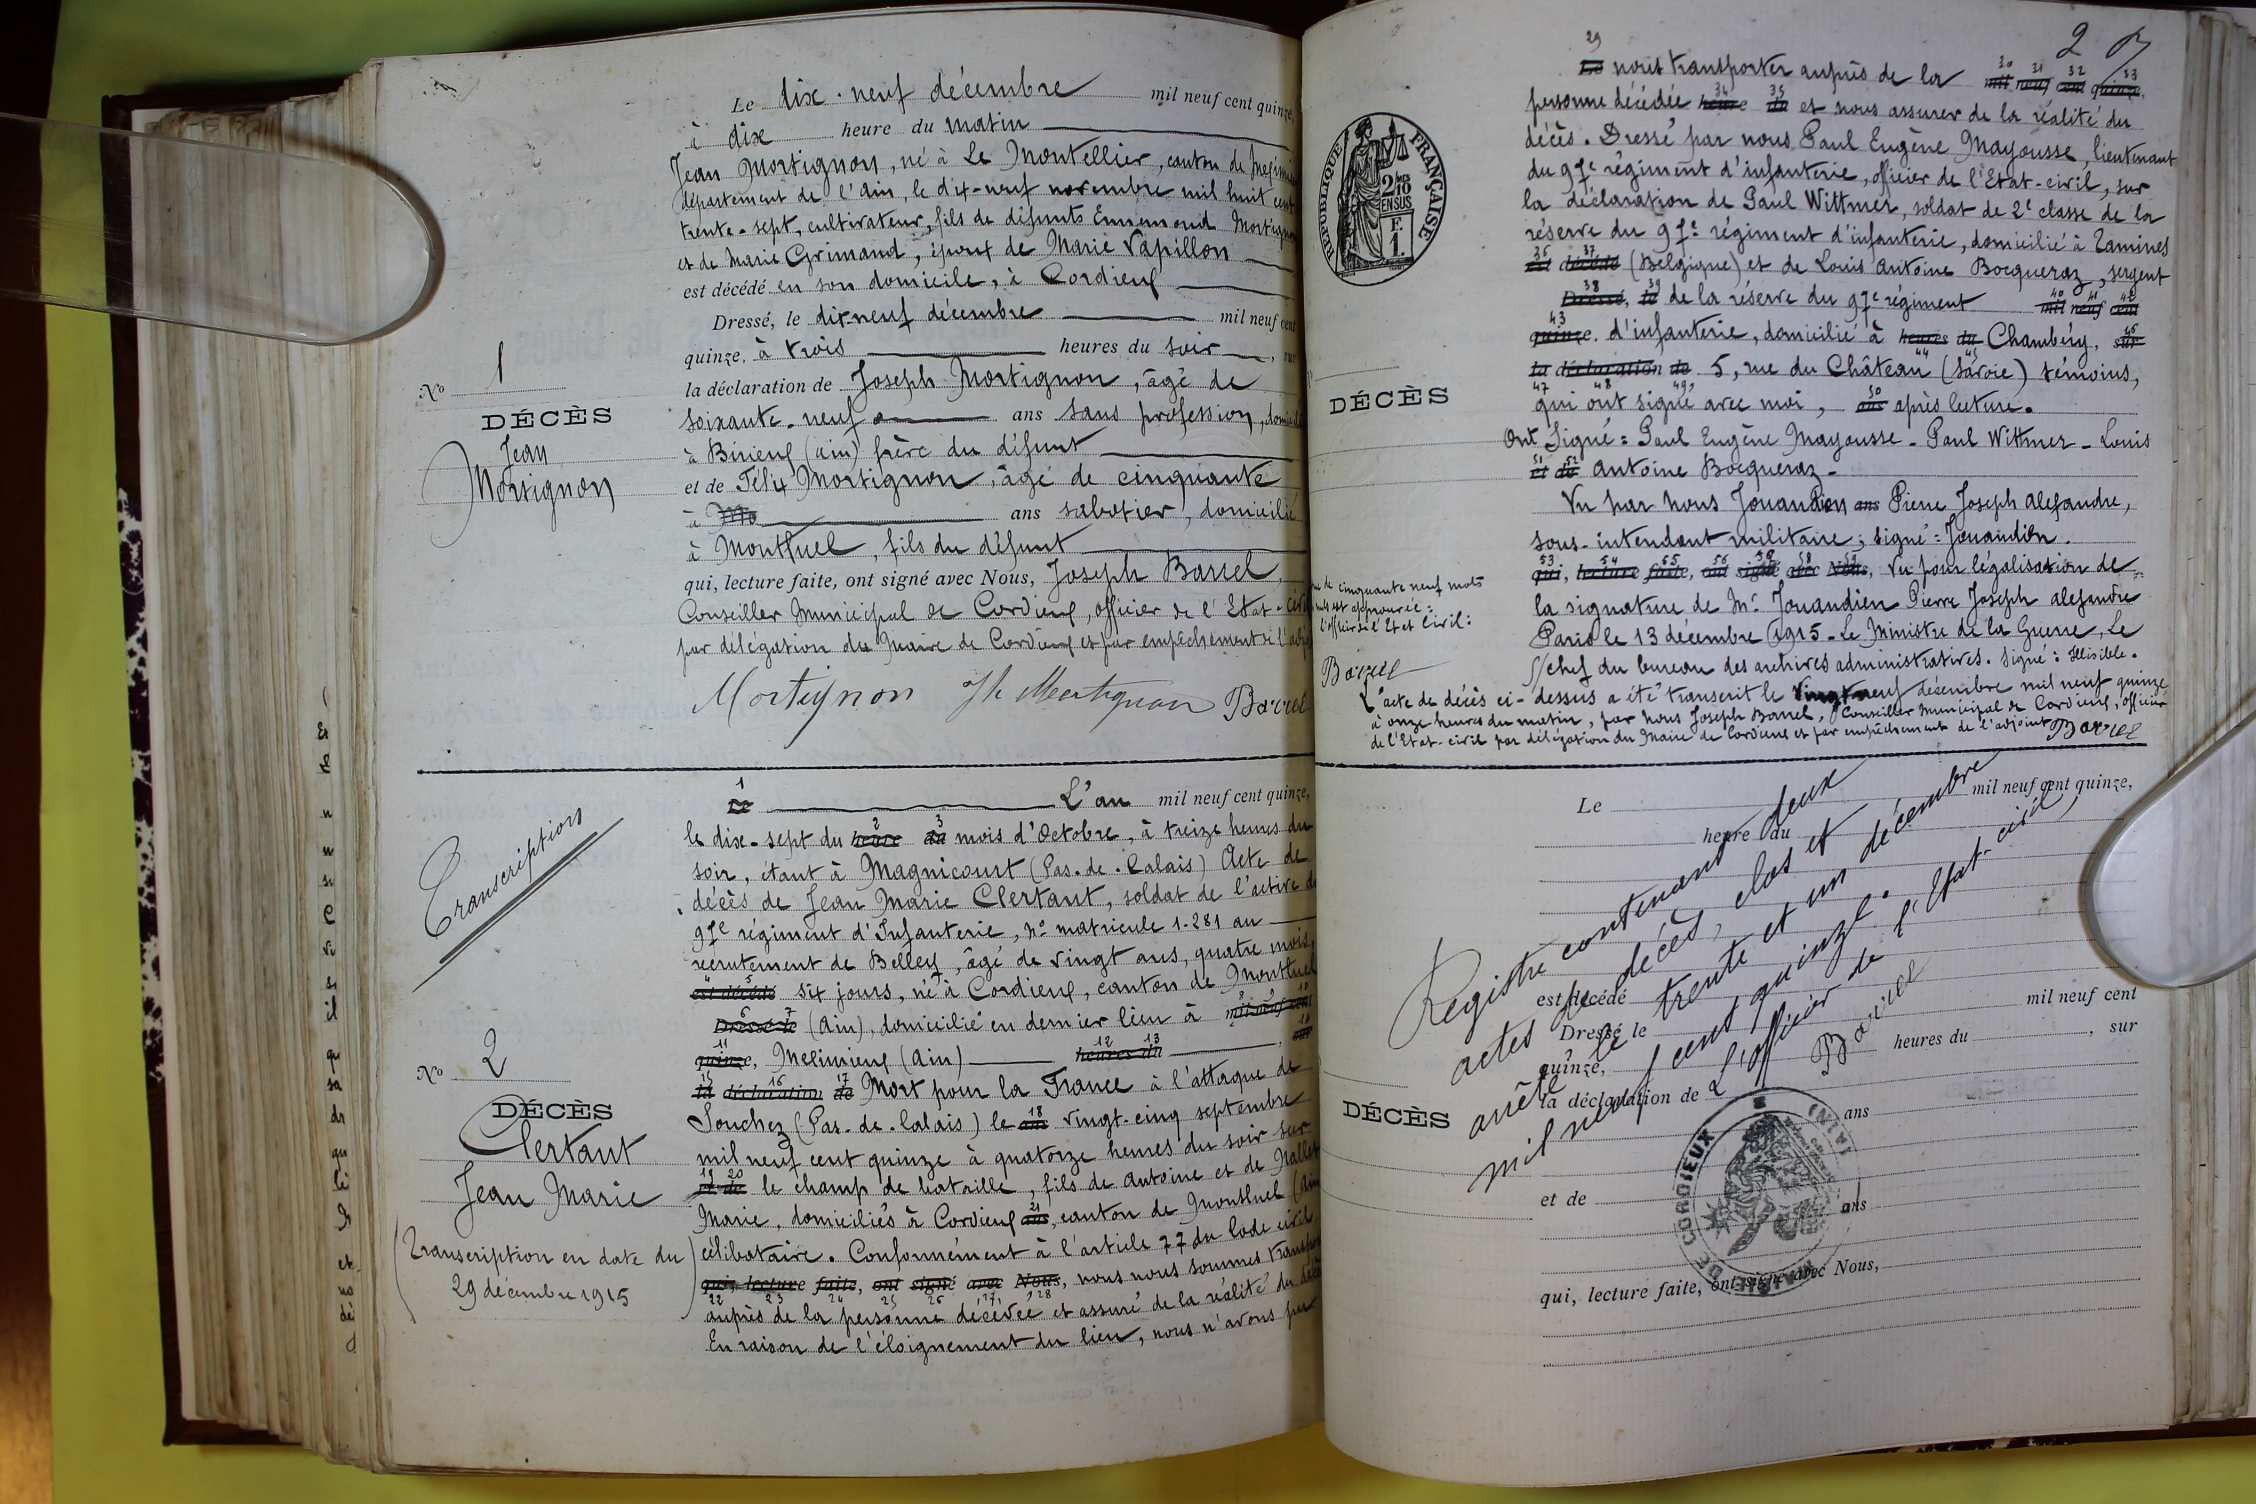 Le dix-neuf décembre mil neuf cent quinze,
à dix heure du matin
Jean Mortignon, né à Le Montellier, canton de
département de l'Ain, le dix-neuf novembre mil huit cent
trente-sept, cultivateur, fils de défunts Ennemond Mortignon
et de Marie Grimand, époux de Marie Vapillon
est décédé en son domicile, à Cordieux
Dressé, le dix-neuf décembre mil neuf cent
quinze, à trois heures du soir, sur
la déclaration de Joseph Mortignon, âgé de
soixante-neuf ans sans profession, domicilié
à Birieux (Ain) frère du défunt
et de Félix Mortignon, âgé de cinquante
à Mo ans sabotier, domicilié
à Montluel, fils du défunt
qui, lecture faite, ont signé avec Nous, Joseph Barrel,
Conseiller Municipal de Cordieux, officier de l'Etat-civil
par délégation du Maire de Cordieux et par empêchement de l'adjoint
Mortignon Jh Mortignon Barrel
No 1
DÉCÈS
Jean
Mortignon
Transcription
1
Le L'an mil neuf cent quinze,
2 3
le dix-sept du heure du mois d'Octobre, à treize heures du
soir, étant à Magnicourt (Pas-de-Calais) Acte de
décès de Jean Marie Clertant, soldat de l'active du
97e régiment d'Infanterie, No matricule 1-281 au
recrutement de Belley, âgé de vingt ans, quatre mois,
4 5
est décédé six jours, né à Cordieux, canton de Montluel
6 7 8 9 10
Dressé le (Ain), domicilié en dernier lieu à mil neuf cent
11 12 13 14
quinze, Meximieux (Ain) heures du, sur
15 16 17
la déclaration de Mort pour la France à l'attaque de
18
Souchez (Pas-de-Calais) le ans vingt-cinq septembre
mil neuf cent quinze à quatorze heures du soir sur
19 20
et de le champ de bataille, fils de Antoine et de
21
Marie, domiciliés à Cordieux ans, canton de Montluel (Ain
célibataire. Conformément à l'article 77 du Code civil
qui, lecture faite, ont signé avec Nous, nous nous sommes transporté
22 23 24 25 26 27 28
auprès de la personne décédée et assuré de la réalité du décès
En raison de l'éloignement du lieu, nous n'avons pu
No 2
DÉCÈS
Clertant
Jean Marie
(Transcription en date du
29 décembre 1915)
2
29 30 31 32 33
Le nous transporter auprès de la mil neuf cent quinze,
34 35
personne décédée heure du et nous assurer de la réalité du
décès. Dressé par nous Paul Eugène Mayousse, lieutenant
du 97e régiment d'infanterie, officier de l'Etat-civil, sur
la déclaration de Paul Wittmer, soldat de 2e classe de la
réserve du 97e régiment d'infanterie, domicilié à Tamines
36 37
est décédé (Belgique) et de Louis Antoine Bocqueraz, sergent
38 39 40 41 42
Dressé, le de la réserve du 97e régiment mil neuf cent
43
quinze. d'infanterie, domicilié à heures du Chambéry, sur
44 45 46
la déclaration de 5, rue du Château (Savoie) témoins,
47 48 49 50
qui ont signé avec moi, ans après lecture.
Ont Signé = Paul Eugène Mayousse - Paul Wittmer - Louis
51 52
et de Antoine Bocqueraz -
Vu par Nous Jouandien ans Pierre Joseph Alexandre,
sous-intendant militaire; signé = Jouandien.
53 54 55 56 57 58 59
qui, lecture faite, ont signé avec Nous, Vu pour légalisation de
la signature de Mr Jouandien Pierre Joseph Alexandre
Paris le 13 décembre 1915 - Le Ministre de la Guerre, Le
S/chef du bureau des archives administratives. Signé: Illisible.
L'acte de décès ci-dessus a été transcrit le vingt neuf décembre mil neuf quinze
à onze heures du matin, par Nous Joseph Barrel, Conseiller Municipal de Cordieux, officier
de l'Etat-civil par délégation du Maire de Cordieux et par empêchement de l'adjoint Barrel
RÉPUBLIQUE FRANÇAISE
2/10
EN SUS
F.
1.
DÉCÈS
de cinquante neuf mots
nuls est approuvée =
l'officier de l'Etat Civil:
Barrel
Le mil neuf cent quinze,
heure du
est décédé
Dressé le mil neuf cent
quinze, heures du, sur
la déclaration de
ans
et de
ans
qui, lecture faite, ont signé avec Nous,
DÉCÈS
Registre contenant deux
actes de décès, clos et
arrêté le trente et un décembre
mil neuf cent quinze.
L'officier de l'Etat-civil
Barrel
MAIRIE DE CORDIEUX (AIN)